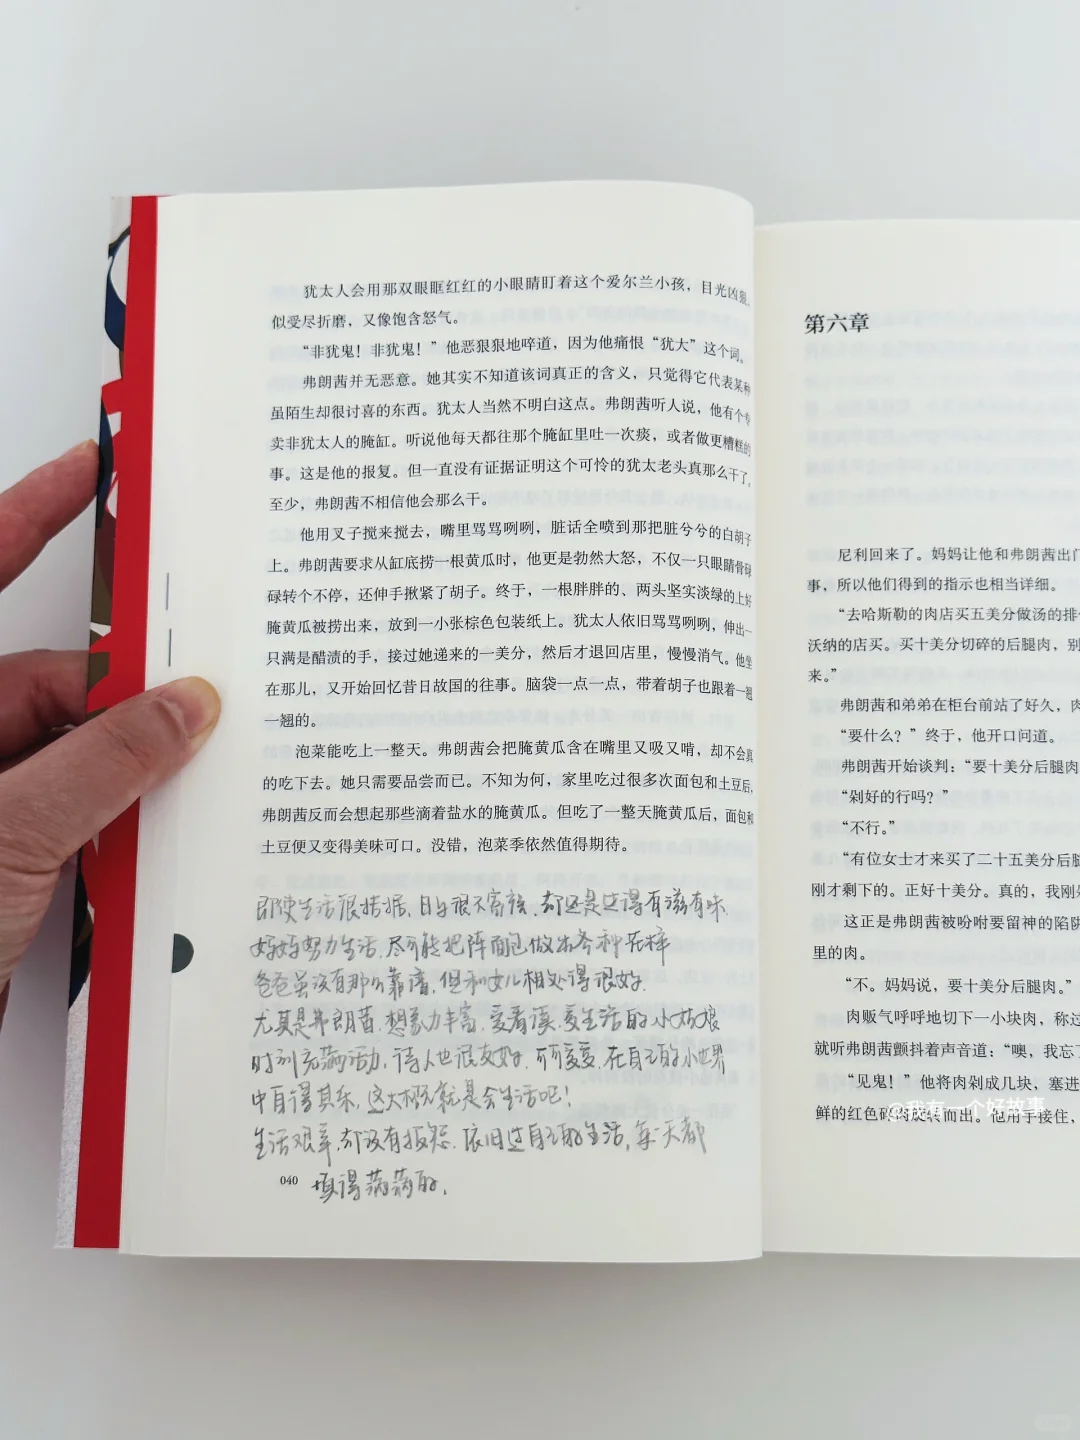 犹太人会用那双眼眶红红的小眼睛盯着这个爱尔兰小孩，目光凶狠，
似受尽折磨，又像饱含怒气。
“非犹鬼！非犹鬼！”他恶狠狠地啐道，因为他痛恨“犹大”这个词。
弗朗茜并无恶意。她其实不知道该词真正的含义，只觉得它代表某种
虽陌生却很讨喜的东西。犹太人当然不明白这点。弗朗茜听人说，他有个专
卖非犹太人的腌缸。听说他每天都往那个腌缸里吐一次痰，或者做更糟糕的
事。这是他的报复。但一直没有证据证明这个可怜的犹太老头真那么干了。
至少，弗朗茜不相信他会那么干。
他用叉子搅来搅去，嘴里骂骂咧咧，脏话全喷到那把脏兮兮的白胡子
上。弗朗茜要求从缸底捞一根黄瓜时，他更是勃然大怒，不仅一只眼睛骨碌
碌转个不停，还伸手揪紧了胡子。终于，一根胖胖的、两头坚实淡绿的上好
腌黄瓜被捞出来，放到一小张棕色包装纸上。犹太人依旧骂骂咧咧，伸出一
只满是醋渍的手，接过她递来的一美分，然后才退回店里，慢慢消气。他坐
在那儿，又开始回忆昔日故国的往事。脑袋一点一点，带着胡子也跟着一翘
一翘的。
泡菜能吃上一整天。弗朗茜会把腌黄瓜含在嘴里又吸又啃，却不会真
的吃下去。她只需要品尝而已。不知为何，家里吃过很多次面包和土豆后，
弗朗茜反而会想起那些滴着盐水的腌黄瓜。但吃了一整天腌黄瓜后，面包和
土豆便又变得美味可口。没错，泡菜季依然值得期待。
即使生活很拮据，日子很不富裕，却还是过得有滋有味
妈妈努力生活，尽可能把陈面包做出各种花样
爸爸虽没有那么靠谱，但和女儿相处得很好
尤其是弗朗茜，想象力丰富，爱看读，爱生活的小姑娘
时刻充满活动，待人也很友好，可可爱爱，在自己的小世界
中自得其乐，这大概就是会生活吧！
生活艰辛，却没有抱怨，依旧过自己的生活，每一天都
填得满满的。
040
第六章
尼利回来了。妈妈让他和弗朗茜出门
事，所以他们得到的指示也相当详细。
“去哈斯勒的肉店买五美分做汤的排骨
沃纳的店买。买十美分切碎的后腿肉，别
来。”
弗朗茜和弟弟在柜台前站了好久，肉
“要什么？”终于，他开口问道。
弗朗茜开始谈判：“要十美分后腿肉
“剁好的行吗？”
“不行。”
“有位女士才来买了二十五美分后腿
刚才剩下的。正好十美分。真的，我刚
这正是弗朗茜被吩咐要留神的陷阱
里的肉。
“不。妈妈说，要十美分后腿肉。”
肉贩气呼呼地切下一小块肉，称过
就听弗朗茜颤抖着声音道：“噢，我忘了
“见鬼！”他将肉剁成几块，塞进
鲜的红色碎肉旋转而出。他用手接住，
@我有一个好故事